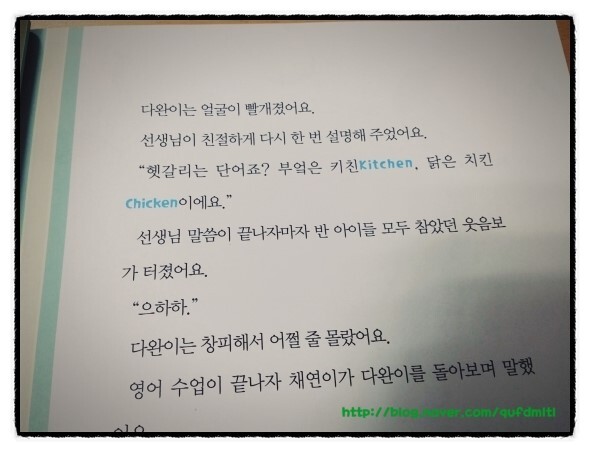 다완이는 얼굴이 빨개졌어요.
선생님이 친절하게 다시 한 번 설명해 주었어요.
“헷갈리는 단어죠? 부엌은 키친Kitchen, 닭은 치킨
Chicken이에요.”
선생님 말씀이 끝나자마자 반 아이들 모두 참았던 웃음보
가 터졌어요.
“으하하.”
다완이는 창피해서 어쩔 줄 몰랐어요.
영어 수업이 끝나자 채연이가 다완이를 돌아보며 말했
어요.
http://blog.naver.com/qufdmltl